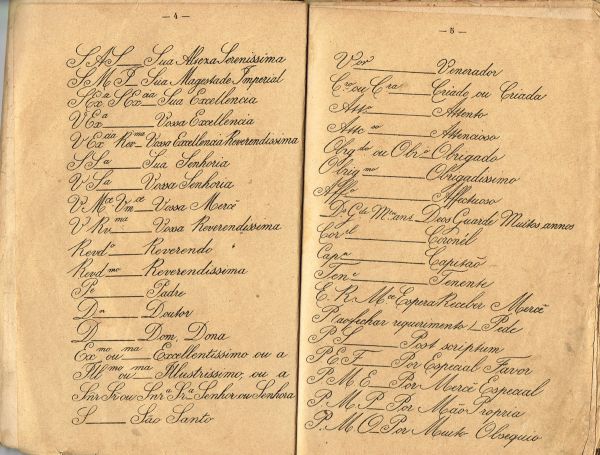 — 4 —
S A S ___ Sua Alteza Serenissima
S M I _ Sua Magestade Imperial
S Exª S Excia _ Sua Excellencia
V Exª ___ Vossa Excellencia
V Excia Revma _ Vossa Excellencia Reverendissima
S Sª ___ Sua Senhoria
V Sª ___ Vossa Senhoria
V Mce Vmce ___ Vossa Mercê
V Rvma ___ Vossa Reverendissima
Revdo ___ Reverendo
Revdmo ___ Reverendissima
Pe ___ Padre
Dr ___ Doutor
D ___ Dom, Dona
Exmo ou ma ___ Excellentissimo ou a
Illmo ou ma ___ Illustrissimo, ou a
Snr Sr ou Snrª Srª _ Senhor ou Senhora
S ___ São Santo
— 5 —
Vor ___ Venerador
Cro ou Cra ___ Criado ou Criada
Atto ___ Attento
Attcso ___ Attencioso
Obrigdo ou Obro Obrigado
Obrigmo ___ Obrigadissimo
Affo ___ Affectuoso
Ds Gde Mtos anns _ Deos Guarde Muitos annos
Corel ___ Coronél
Capm ___ Capitão
Tene ___ Tenente
E. R. Mce Espera Receber Mercê
P. ao fechar requerimento _ Pede
P S ___ Post scriptum
P E F ___ Por Especial Favor
P M E _ Por Mercê Especial
P M P _ Por Mão Propria
P. M. O _ Por Muito Obsequio